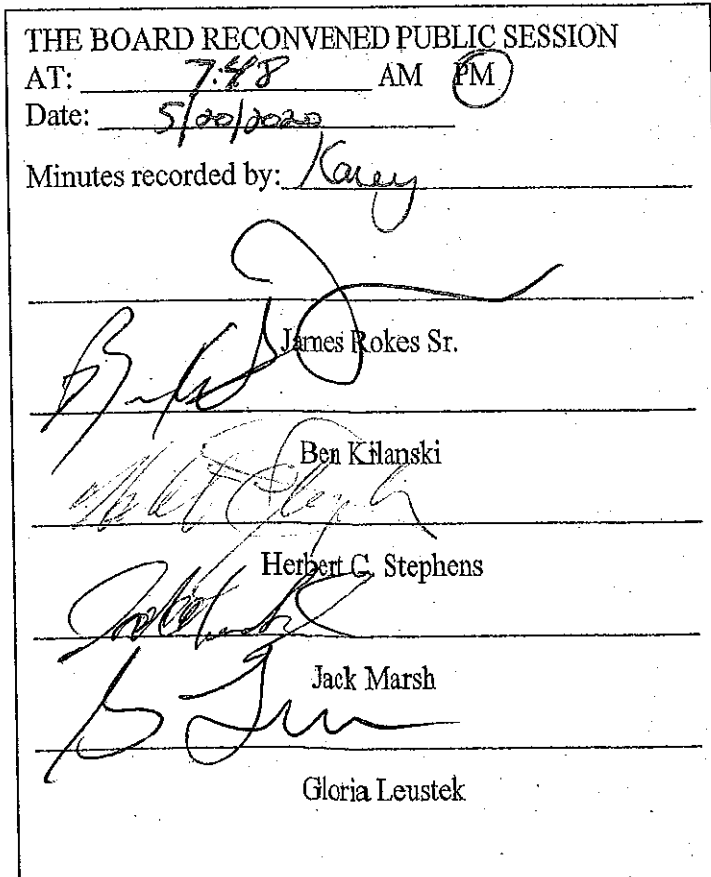 THE BOARD RECONVENED PUBLIC SESSION
AT: 7:48 AM PM
Date: 5/20/2020
Minutes recorded by: Karey
James Rokes Sr.
Ben Kilanski
Herbert G. Stephens
Jack Marsh
Gloria Leustek